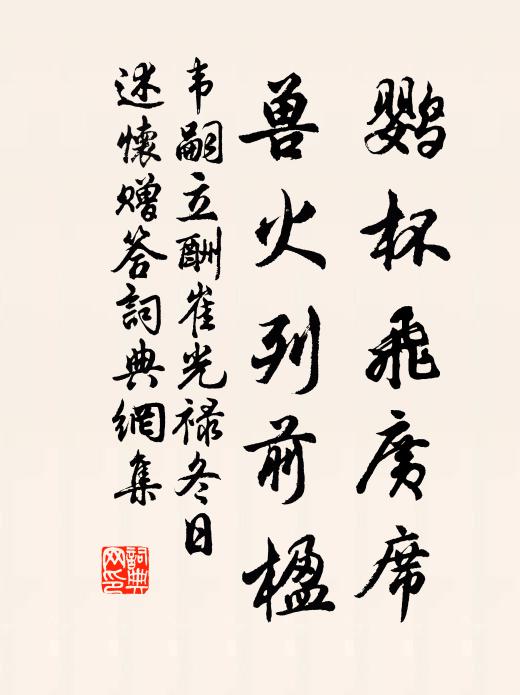 鹦杯飛廣席
兽火列前楹
韦嗣立酬崔光禄冬日
述懷贈答詞典網集
詞典网印